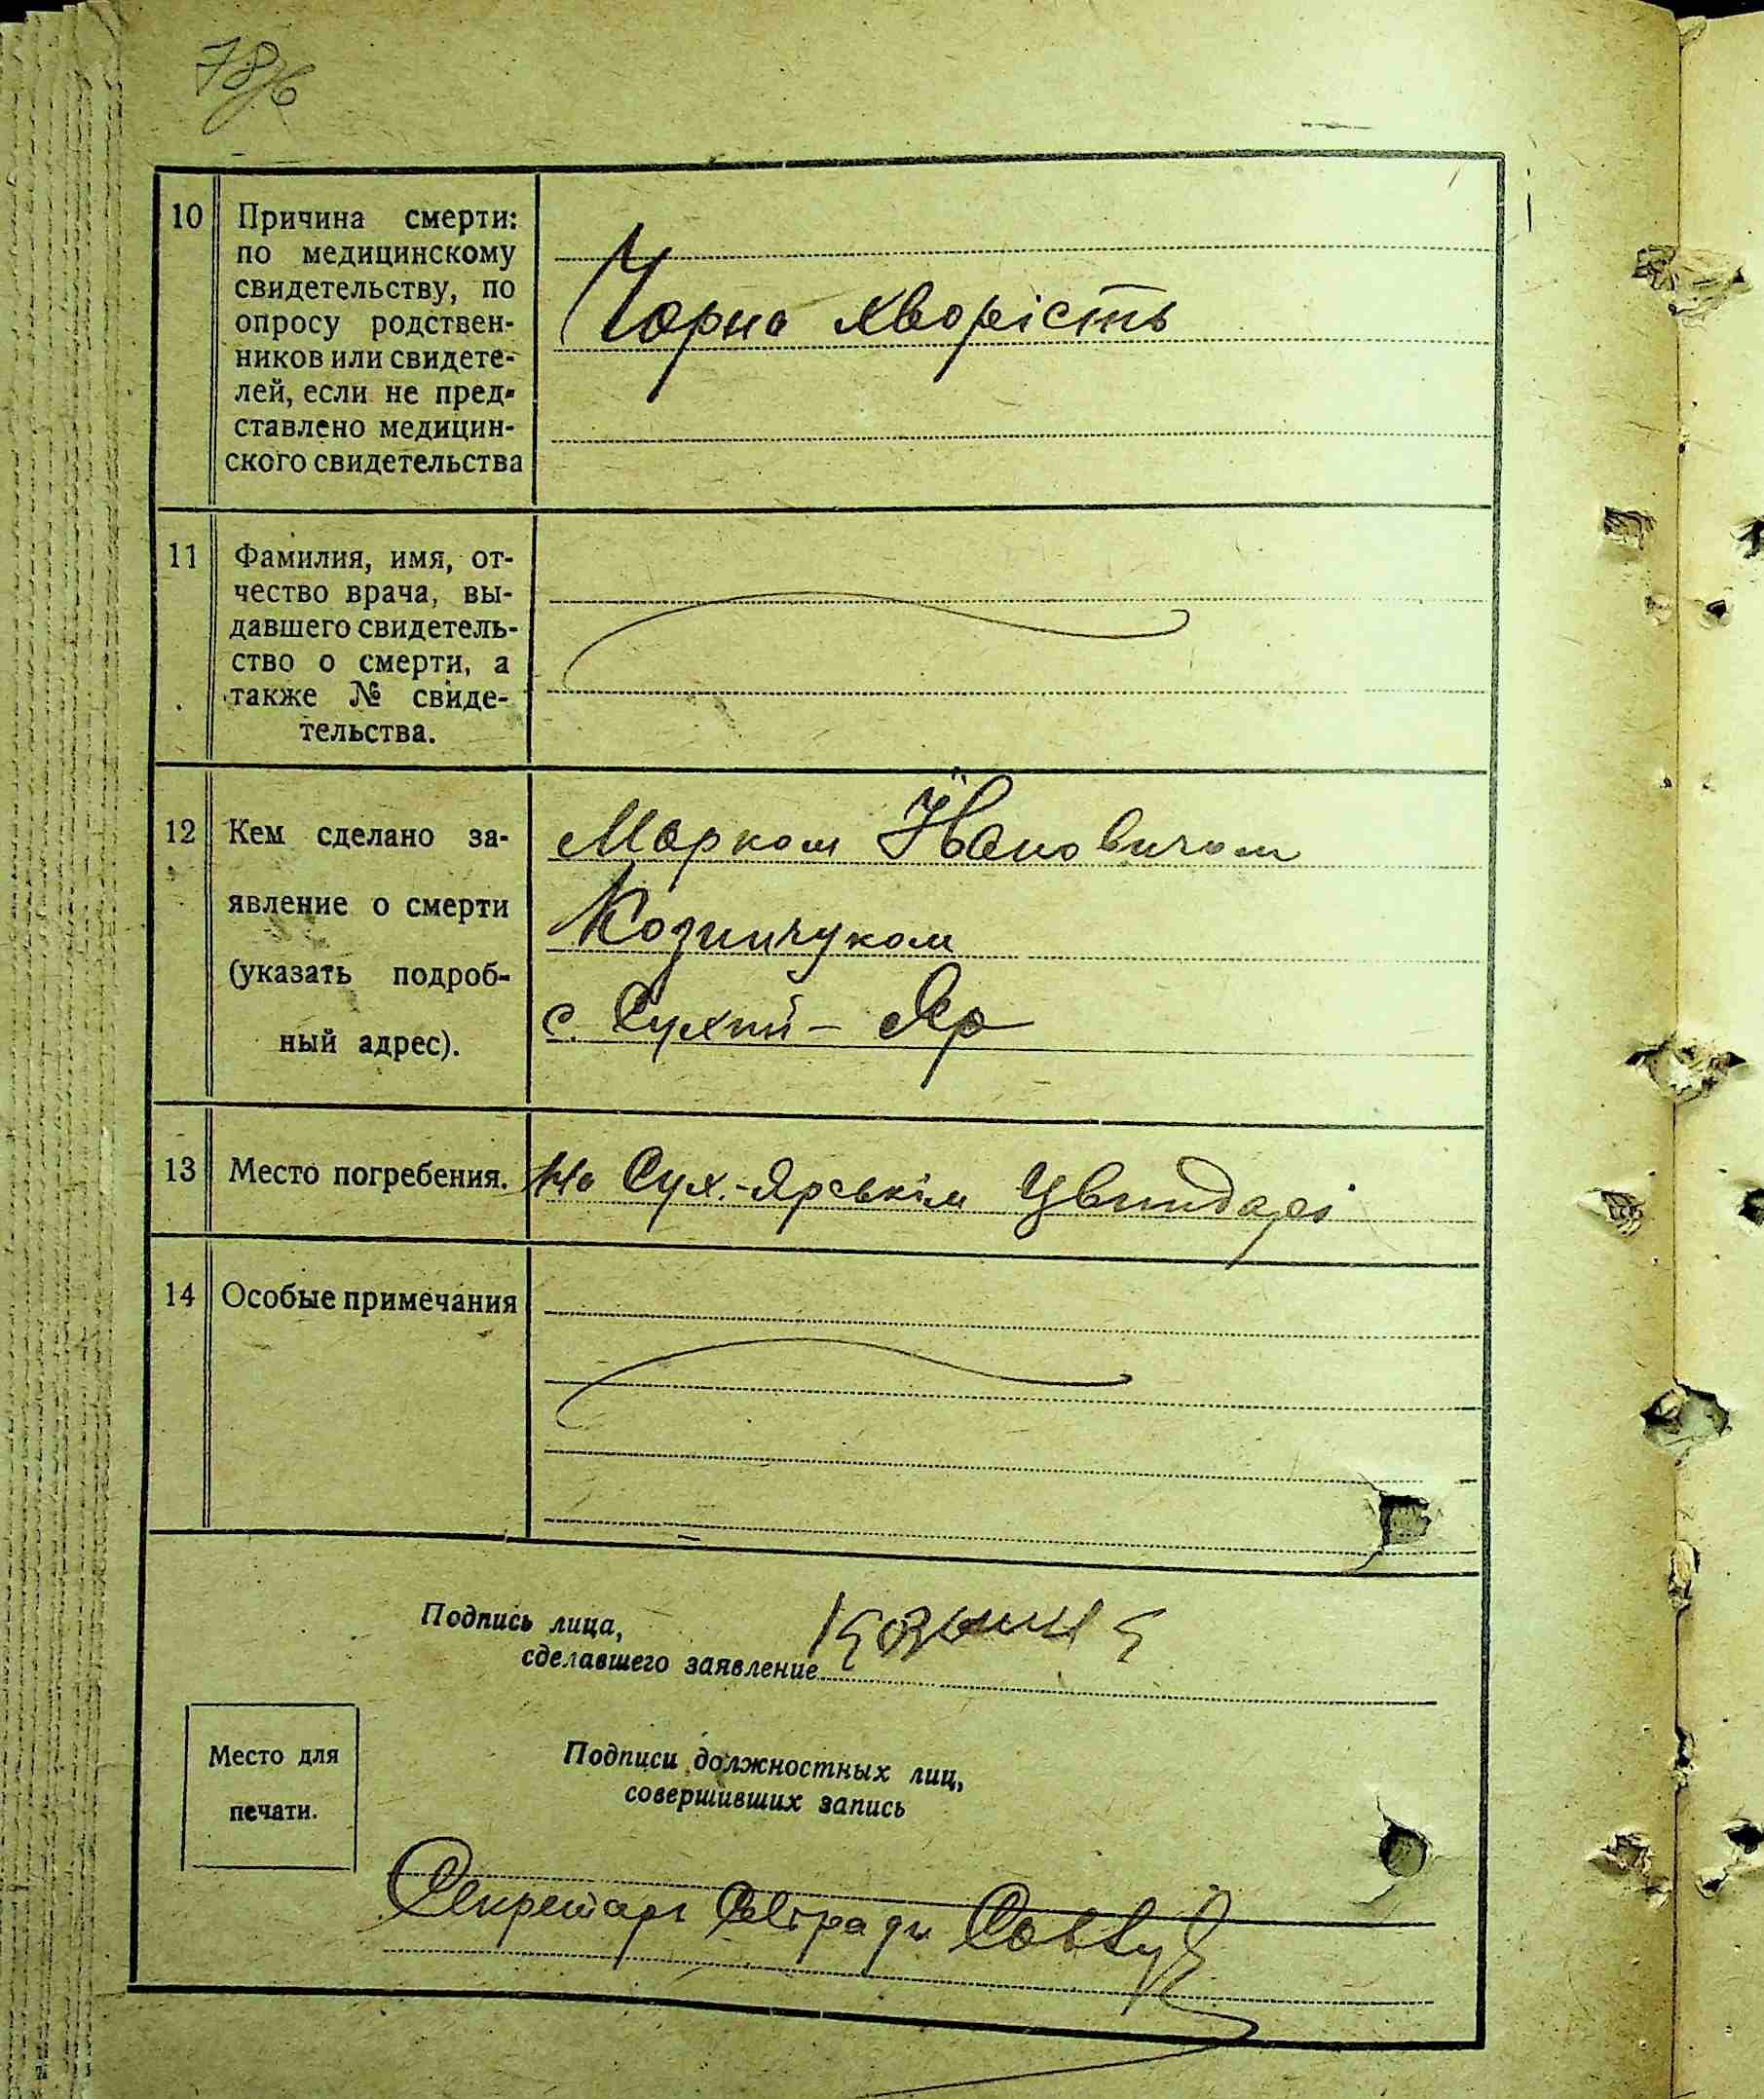 10 Причина смерти:
по медицинскому
свидетельству, по
опросу родствен-
ников или свидете-
лей, если не пред-
ставлено медицин-
ского свидетельства
Чорна хворість
11 Фамилия, имя, от-
чество врача, вы-
давшего свидетель-
ство о смерти, а
также № свиде-
тельства.
12 Кем сделано за-
явление о смерти
(указать подроб-
ный адрес).
Марком Йвановичом
Козинчуком
с. Сухий - Яр
13 Место погребения. На Сух.-Ярськім цвинтарі
14 Особые примечания
Подпись лица,
сделавшего заявление
Место для
печати.
Подписи должностных лиц,
совершивших запись
Секретарь